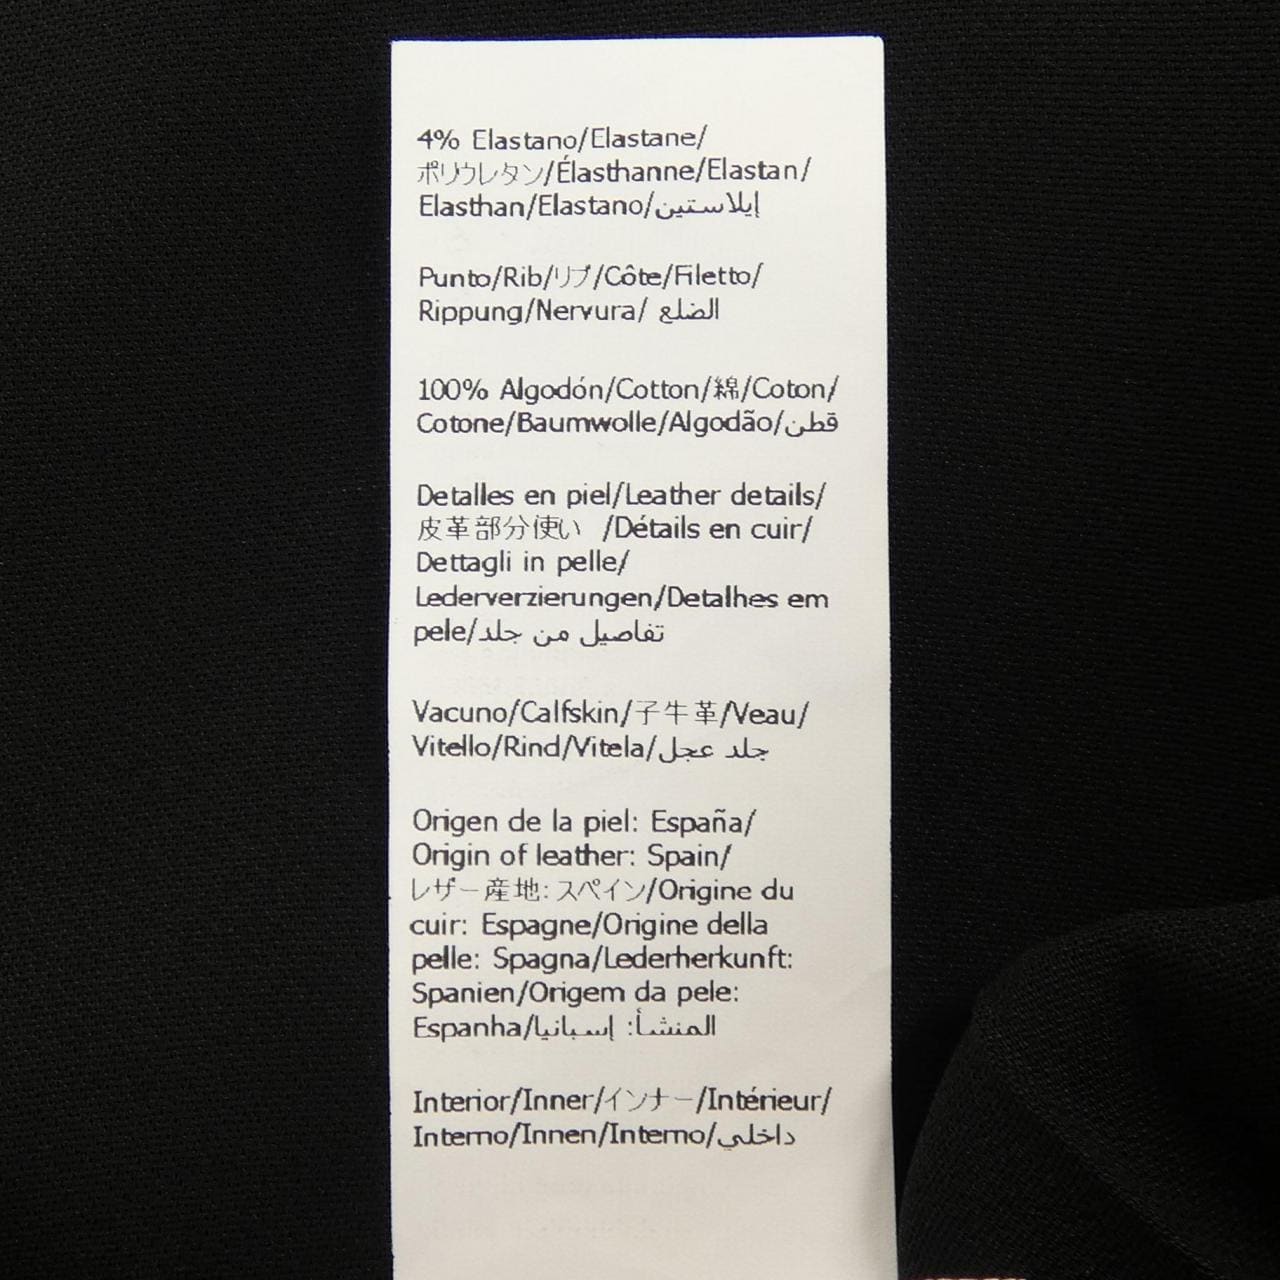 4% Elastano/Elastane/
ポリウレタン/Élasthanne/Elastan/
Elasthan/Elastano/إيلاستين
Punto/Rib/リブ/Côte/Filetto/
Rippung/Nervura/ الضلع
100% Algodón/Cotton/綿/Coton/
Cotone/Baumwolle/Algodão/قطن
Detalles en piel/Leather details/
皮革部分使い /Détails en cuir/
Dettagli in pelle/
Lederverzierungen/Detalhes em
pele/تفاصيل من جلد
Vacuno/Calfskin/子牛革/Veau/
Vitello/Rind/Vitela/جلد عجل
Origen de la piel: España/
Origin of leather: Spain/
レザー産地: スペイン/Origine du
cuir: Espagne/Origine della
pelle: Spagna/Lederherkunft:
Spanien/Origem da pele:
Espanha/المنشأ: إسبانيا
Interior/Inner/インナー/Intérieur/
Interno/Innen/Interno/داخلي